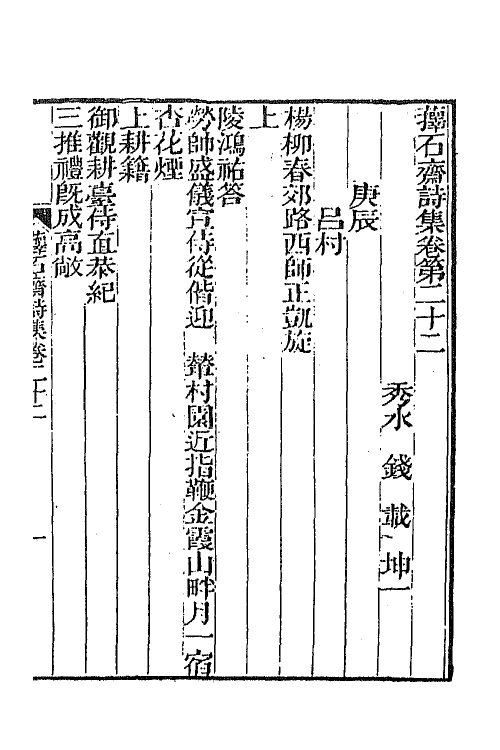 蘀石齋詩集卷第二十二
秀水 錢載 坤一
庚辰
呂村
楊柳春郊路西師正凱旋
上
陵鴻祐答
勞師盛儀宣侍從偕迎 輦村園近指鞭金霞山畔月一宿
杏花煙
上耕籍
御觀耕臺侍直恭紀
三推禮旣成高敞
蘀石齋詩集卷二十二 一